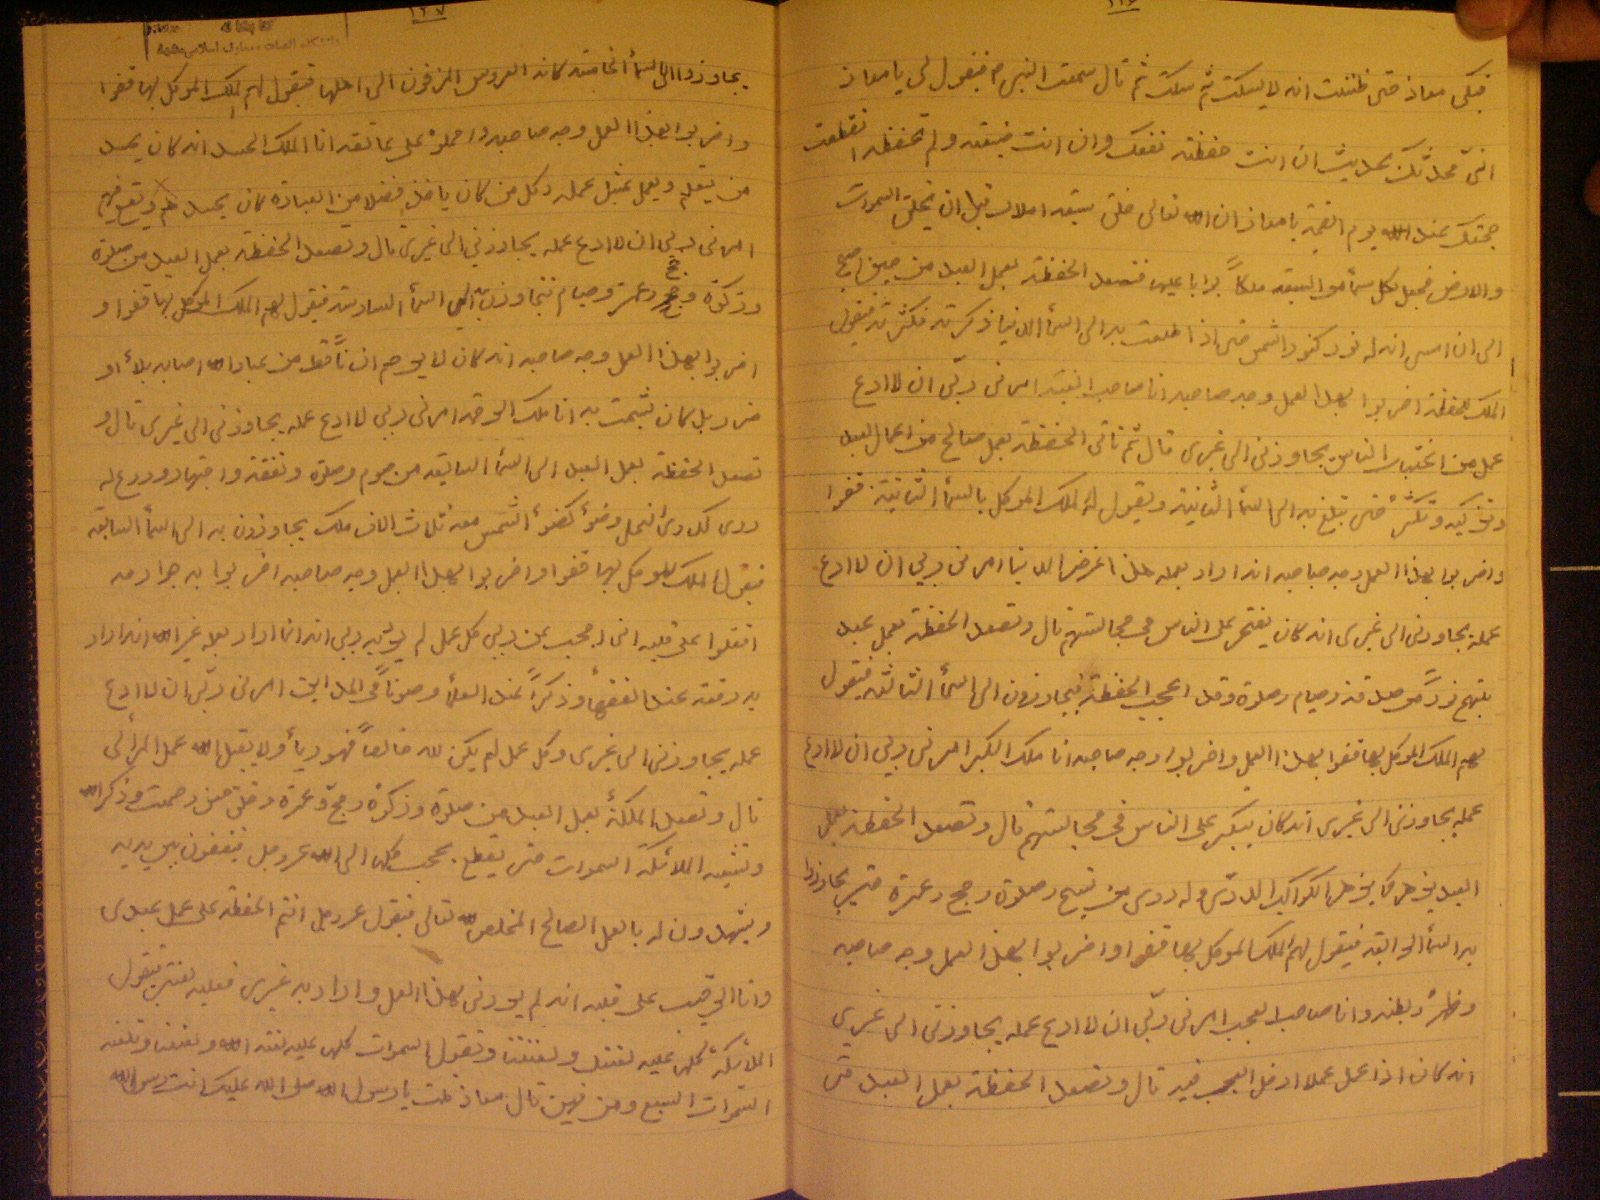 ١١٦
فبكى معاذ حتى ظننت انه لا يسكت ثم سكت ثم قال سمعت النبي ص فيقول لى يا معاذ
انى محدثك بحديث ان انت حفظته نفعك وان انت ضيعته ولم تحفظه انقطعت
حجتك عند الله يوم القيمة يا معاذ ان الله تعالى خلق سبعة املاك قبل ان يخلق السموات
والارض فجعل لكل سمأ من السبعة ملكاً بوابا عليها فتصعد الحفظة بعمل العبد من حين اصبح
الى ان امسى له نور كنور الشمس حتى اذا طلعت به الى السمأ الدنيا ذكرته فكثرته فيقول
الملك للحفظة اضربوا بهذا العمل وجه صاحبه انا صاحب الغيبة امرنى ربّى ان لا ادع
عمل من اغتاب الناس يجاوزنى الى غيرى قال ثم تأتى الحفظة بعمل صالح من اعمال العبد
وتزكيه وتكثره حتى تبلغ به الى السمأ الثانية ويقول لهم الملك الموكل بالسمأ الثانية قفوا
واضربوا بهذا العمل وجه صاحبه انه اراد بعمله هذا عرض الدنيا امرنى ربى ان لا ادع
عمله يجاوزنى الى غيرى انه كان يفتخر على الناس فى مجالستهم قال وتصعد الحفظة بعمل عبد
يبتهج نوراً من صدقة وصيام وصلوة وقد اعجب الحفظة فيجاوزون الى السمأ الثالثة فيقول
لهم الملك الموكل بها قفوا بهذا العمل واضربوا وجه صاحبه انا ملك الكبر امرنى ربى ان لا ادع
عمله يجاوزنى الى غيرى انه كان يتكبر على الناس فى مجالستهم قال وتصعد الحفظة بعمل
العبد يزهر كما يزهر الكواكب الدرّى وله دوى من تسبيح وصلوة وحج وعمرة حتى يجاوزوا
به السمأ الرابعة فيقول لهم الملك الموكل بها قفوا واضربوا بهذا العمل وجه صاحبه
وظهرهُ وبطنه وانا صاحب العجب امرنى ربّى ان لا ادع عمله يجاوزنى الى غيرى
انه كان اذا عمل عملا ادخل العجب فيه قال وتصعد الحفظة بعمل العبد حتى
١١٧
يجاوزوا الى السمأ الخامسة كانه العروس المزفوفة الى اهلها فيقول لهم الملك الموكل بها قفوا
واضربوا بهذا العمل وجه صاحبه واحملوهُ على عاتقه انا الملك الحسد انه كان يحسد
من يتعلم ويعمل بمثل عمله وكل من كان يأخذ فضلا من العبادة كان يحسدهم ويقع فيهم
امرنى ربى ان لا ادع عمله يجاوزنى الى غيرى قال وتصعد الحفظة بعمل العبد من صلوة
وزكوة وحج وعمرة وصيام فيتجاوزون به الى السمأ السادسة فيقول لهم الملك الموكل بها قفوا و
اضربوا بهذا العمل وجه صاحبه انه كان لا يرحم انساناً قط من عباد الله اصابه بلاء او
ضر بل كان يشمت به انا ملك الرحمة امرنى ربى لا ادع عمله يجاوزنى الى غيرى قال و
تصعد الحفظة بعمل العبد الى السمأ السابعة من صوم وصلوة ونفقة واجتهاد وورع له
دوى كدوى النحل وضوء كضوء الشمس معه ثلاث الاف ملك يجاوزون به الى السمأ السابعة
فيقول الملك الموكل بها قفوا واضربوا بهذا العمل وجه صاحبه اضربوا به جوارحه
اقفلوا على قلبه انى احجب عن ربى كل عمل لم يرد به ربى انه انما اراد بعمله غير الله انه اراد
به رفعة عند الفقهأ وذكراً عند العلمأ وصوتاً فى المداين امرنى ربّى ان لا ادع
عمله يجاوزنى الى غيرى وكل عمل لم يكن لله خالصاً فهو ريأ ولا يقبل الله عمل المرائى
قال وتصعد الملئكة بعمل العبد من صلوة وزكوة وحج وعمرة وخلق حسن وصمت وذكر الله
وتشيعه الملائكة السموات حتى يقطع حجب كلها الى الله عز وجل فيقفون بين يديه
ويشهدون له بالعمل الصالح المخلص لله تعالى فيقول عز وجل انتم الحفظة على عمل عبدى
وانا الرقيب على قلبه انه لم يردنى بهذا العمل واراد به غيرى فعليه لعنتى فيقول
الملائكة كلهم عليه لعنتك ولعنتنا وتقول السموات كلها عليه لعنة الله ولعنتنا وتلعنه
السموات السبع ومن فيهن قال معاذ قلت يا رسول الله صلى الله عليك انت رسول الله